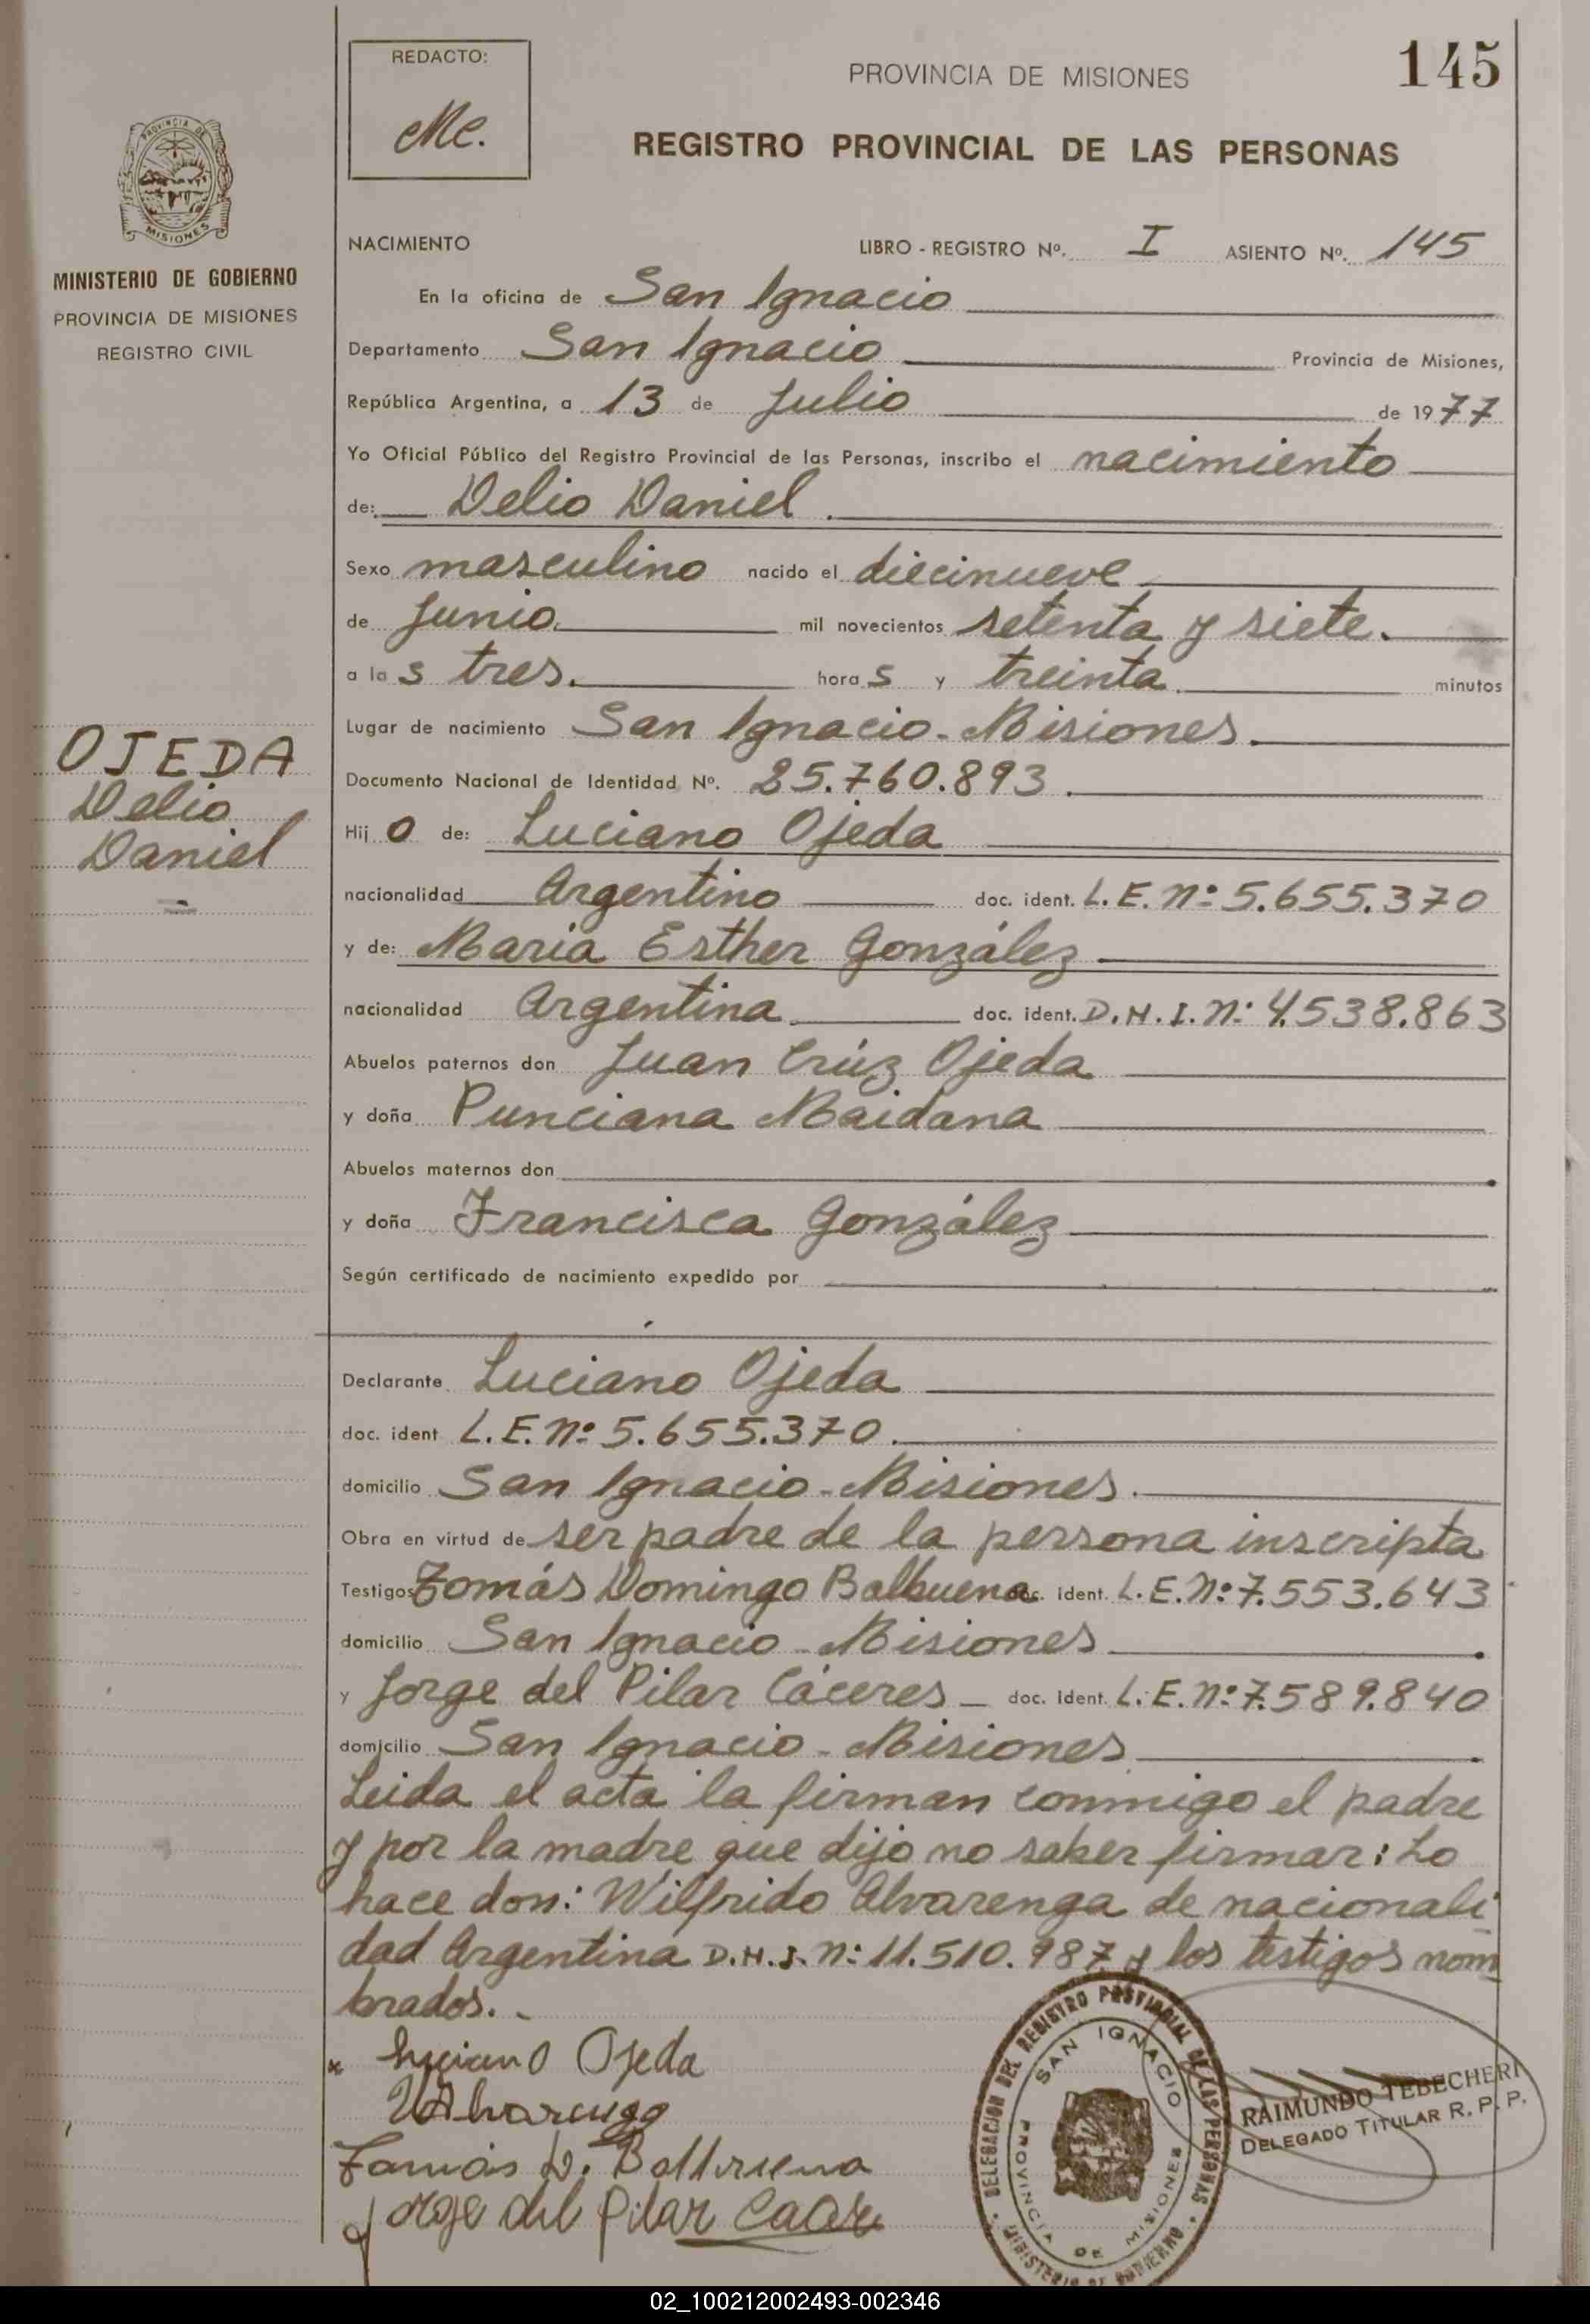 REDACTO:
Me.
PROVINCIA DE MISIONES
145
REGISTRO PROVINCIAL DE LAS PERSONAS
PROVINCIA DE
MISIONES
MINISTERIO DE GOBIERNO
PROVINCIA DE MISIONES
REGISTRO CIVIL
NACIMIENTO LIBRO - REGISTRO Nº. I ASIENTO Nº. 145
En la oficina de San Ignacio
Departamento San Ignacio Provincia de Misiones,
República Argentina, a 13 de Julio de 1977
Yo Oficial Público del Registro Provincial de las Personas, inscribo el nacimiento
de: Delio Daniel.
Sexo masculino nacido el diecinueve
de Junio. mil novecientos setenta y siete.
a las tres. horas y treinta minutos
Lugar de nacimiento San Ignacio - Misiones.
OJEDA
Delio
Daniel
Documento Nacional de Identidad Nº. 25.760.893.
Hijo de: Luciano Ojeda
nacionalidad Argentino doc. ident. L.E. Nº 5.655.370
y de: Maria Esther González
nacionalidad Argentina. doc. ident. D.N.I. Nº 4.538.863
Abuelos paternos don Juan Crúz Ojeda
y doña Punciana Maidana
Abuelos maternos don
y doña Francisca González
Según certificado de nacimiento expedido por
Declarante Luciano Ojeda
doc. ident L.E. Nº 5.655.370.
domicilio San Ignacio - Misiones.
Obra en virtud de ser padre de la persona inscripta
Testigos Tomás Domingo Balbuena doc. ident. L.E. Nº 7.553.643
domicilio San Ignacio - Misiones
y Jorge del Pilar Cáceres - doc. ident. L.E. Nº 7.589.840
domicilio San Ignacio - Misiones
Leida el acta la firman conmigo el padre
y por la madre que dijo no saber firmar: Lo
hace don: Wilfrido Alvarenga de nacionali
dad Argentina D.N.I. Nº 11.510.987 y los testigos nom
brados. -
Luciano Ojeda
WAlvarenga
Tomás D. Balbuena
Jorge del Pilar Cacere
DELEGACION DEL REGISTRO PROVINCIAL DE LAS PERSONAS
SAN IGNACIO
PROVINCIA DE MISIONES
MINISTERIO DE GOBIERNO
RAIMUNDO TEBECHERI
DELEGADO TITULAR R. P. P.
02_100212002493-002346